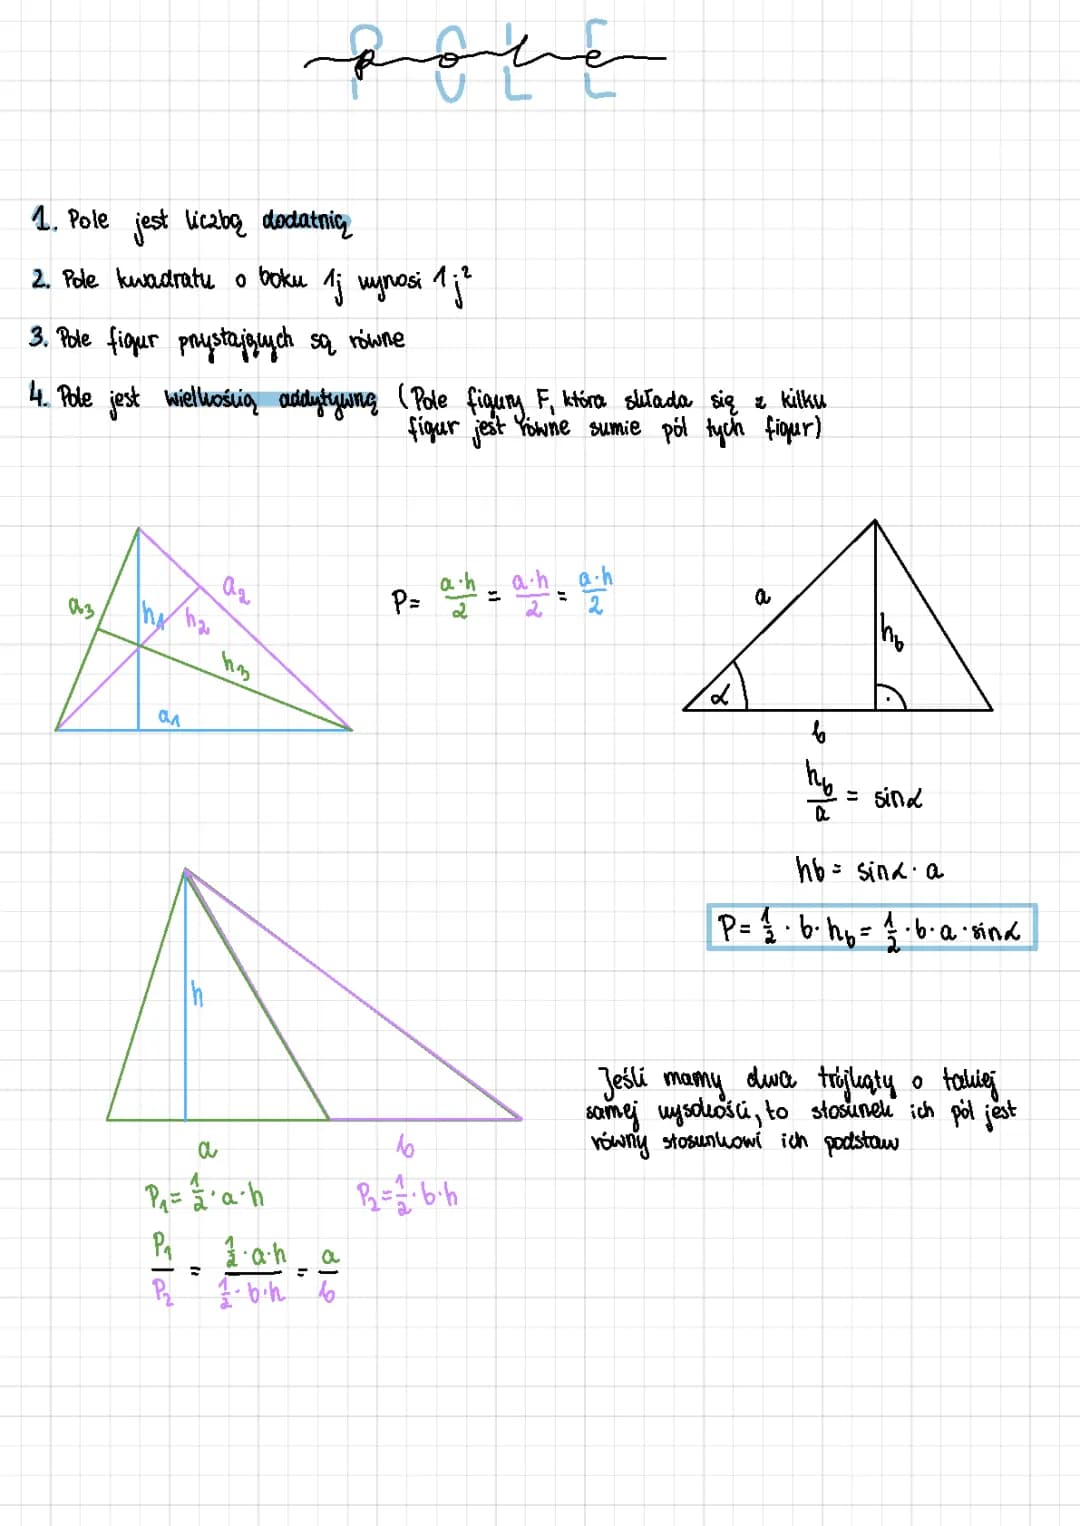 POLE
pole
1. Pole jest liczbą dodatnią
2. Pole kwadratu o boku 1j wynosi 1j²
3. Pole figur przystających są równe
4. Pole jest wielkością addytywną (Pole figury F, która składa się z kilku
figur jest równe sumie pól tych figur)
a₃
h₁
h₂
a₂
h₃
a₁
P= a·h/2 = a·h/2 = a·h/2
a
h_b
α
b
h_b/a = sinα
hb = sinα · a
P= 1/2 · b · h_b = 1/2 · b · a · sinα
h
a
b
P₁= 1/2 · a · h
P₂= 1/2 · b · h
P₁/P₂ = 1/2 · a · h / 1/2 · b · h = a/b
Jeśli mamy dwa trójkąty o takiej
samej wysokości, to stosunek ich pól jest
równy stosunkowi ich podstaw